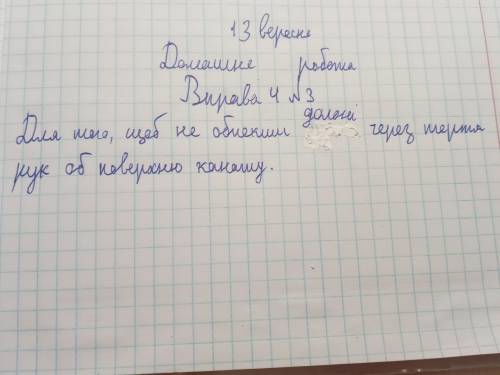 13 вересня
Домашнє робота
Вправа 4 №3
Для того, щоб не обпекти долоні через тертя
рук об поверхню канату.